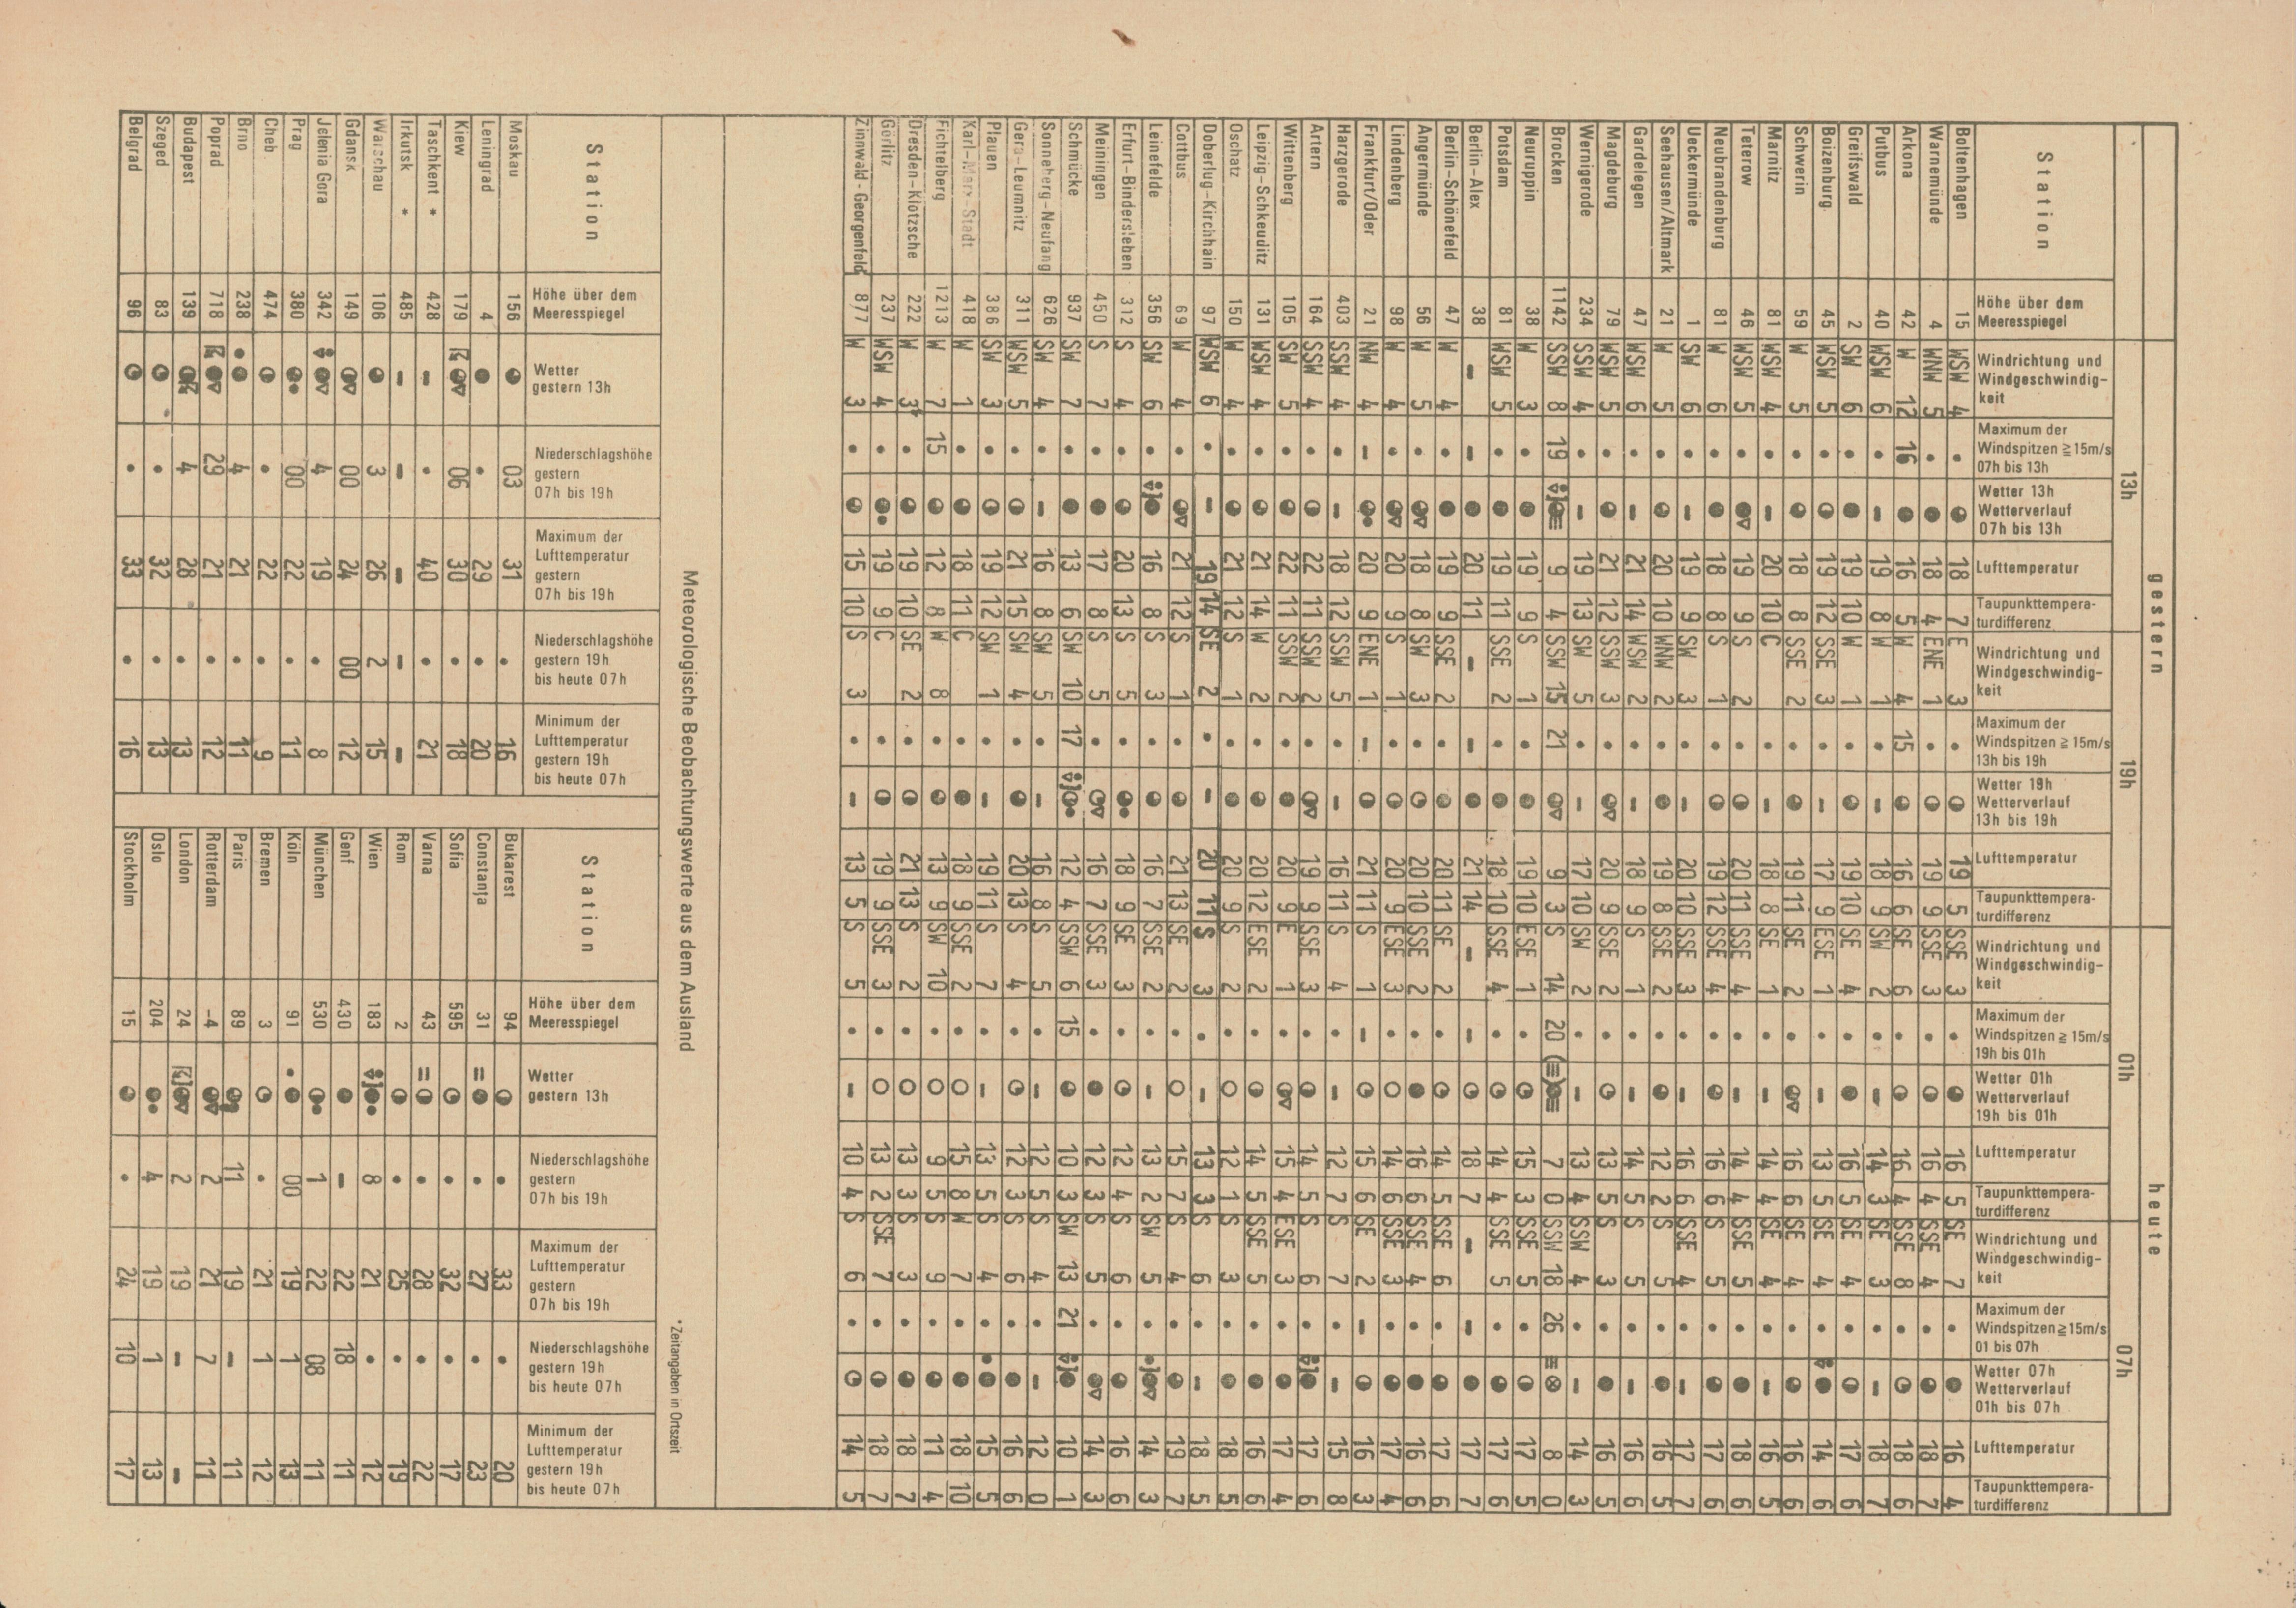 gestern heute
13h 19h 01h 07h
Station
Höhe über dem Meeresspiegel
Windrichtung und Windgeschwindig-keit
Maximum der Windspitzen ≧ 15m/s 07h bis 13h
Wetter 13h Wetterverlauf 07h bis 13h
Lufttemperatur
Taupunkttempera-turdifferenz
Windrichtung und Windgeschwindig-keit
Maximum der Windspitzen ≧ 15m/s 13h bis 19h
Wetter 19h Wetterverlauf 13h bis 19h
Lufttemperatur
Taupunkttempera-turdifferenz
Windrichtung und Windgeschwindig-keit
Maximum der Windspitzen ≧ 15m/s 19h bis 01h
Wetter 01h Wetterverlauf 19h bis 01h
Lufttemperatur
Taupunkttempera-turdifferenz
Windrichtung und Windgeschwindig-keit
Maximum der Windspitzen ≧ 15m/s 01 bis 07h
Wetter 07h Wetterverlauf 01h bis 07h
Lufttemperatur
Taupunkttempera-turdifferenz
Boltenhagen 15 WSW 4 • 18 7 E 3 • 19 5 SSE 3 • 16 5 SE 7 • 16 4
Warnemünde 4 WNW 5 • 18 4 ENE 1 • 19 9 SSE 3 • 16 4 SSE 4 • 18 7
Arkona 42 W 12 16 16 5 W 4 15 16 6 SE 3 • 16 4 SSE 8 • 18 6
Putbus 40 WSW 6 • – 19 8 W 1 • – 18 9 SW 2 • – 14 3 SE 3 • – 18 7
Greifswald 2 SW 6 • 19 10 W 1 • 19 10 SE 4 • 16 5 SE 4 • 17 6
Boizenburg 45 WSW 5 • 19 12 SSE 3 • – 17 9 ESE 1 • – 13 5 SE 4 • 14 6
Schwerin 59 W 5 • 18 8 SSE 2 • 19 11 SE 2 • 16 6 SE 4 • 16 6
Marnitz 81 WSW 4 • – 20 10 C • – 18 8 SE 1 • – 14 4 SE 4 • – 16 5
Teterow 46 WSW 5 • 19 9 S 2 • 20 11 SSE 4 • – 14 4 SSE 5 • 18 6
Neubrandenburg 81 W 6 • 18 8 S 1 • 19 12 SSE 4 • 16 6 S 5 • 17 6
Ueckermünde 1 SW 6 • – 19 9 SW 3 • – 20 10 SSE 3 • – 16 6 SSE 4 • – 17 7
Seehausen/Altmark 21 W 5 • 20 10 WNW 2 • 19 8 SSE 2 • 12 2 S 5 • 16 5
Gardelegen 47 WSW 6 • – 21 14 WSW 2 • – 18 9 S 1 • – 14 5 S 5 • – 16 6
Magdeburg 79 WSW 5 • 21 12 SSW 3 • 20 9 SSE 2 • 13 5 S 3 • 16 5
Wernigerode 234 SSW 4 • – 19 13 SW 5 • – 17 10 SW 2 • – 13 4 SSW 4 • – 14 3
Brocken 1142 SSW 8 19 9 4 SSW 15 21 9 3 S 14 20 7 0 SSW 18 26 8 0
Neuruppin 38 W 3 • 19 9 S 1 • 19 10 ESE 1 • 15 3 SSE 5 • 17 5
Potsdam 81 WSW 5 • 19 11 SSE 2 • 18 10 SSE 4 • 14 4 SSE 5 • 17 6
Berlin–Alex 38 – – 20 11 – – 21 14 – – 18 7 – – 17 7
Berlin–Schönefeld 47 W 4 • 19 9 SSE 2 • 20 11 SE 2 • 14 5 SSE 6 • 17 6
Angermünde 56 W 5 • 18 8 SW 3 • 20 10 SSE 2 • 16 6 SSE 4 • 16 6
Lindenberg 98 W 4 • 20 9 S 1 • 20 9 ESE 3 • 14 6 SSE 3 • 17 4
Frankfurt/Oder 21 NW 4 – 20 9 ENE 1 – 21 11 S 1 – 15 6 SE 2 – 16 3
Harzgerode 403 SSW 4 • – 18 12 SSW 5 • – 16 11 S 4 • – 12 7 S 7 • – 15 8
Artern 164 SSW 4 • 22 11 SSW 2 • 19 9 SSE 3 • 14 5 S 6 • 17 6
Wittenberg 105 SW 5 • 22 11 SSW 2 • 20 9 E 1 • 15 4 ESE 3 • 17 4
Leipzig–Schkeuditz 131 WSW 4 • 21 14 W 2 • 20 12 ESE 2 • 14 5 SSE 5 • 16 6
Oschatz 150 W 4 • 21 12 S 1 • 20 9 S 2 • 12 1 S 3 • 18 5
Doberlug–Kirchhain 97 WSW 6 • – 19 14 SE 2 • – 20 11 S 3 • – 13 3 S 6 • – 18 5
Cottbus 69 W 4 • 21 12 S 1 • 21 13 SE 2 • 15 7 S 4 • 19 7
Leinefelde 356 SW 6 • 16 8 S 3 • 16 7 SSE 2 • – 13 2 SW 5 • 14 3
Erfurt–Bindersleben 312 S 4 • 20 13 S 5 • 18 9 SE 3 • 12 4 S 6 • 16 6
Meiningen 450 S 7 • 17 8 S 5 • 16 7 SSE 3 • 12 3 S 5 • 14 3
Schmücke 937 SW 7 • 13 6 SW 10 17 12 4 SSW 6 15 10 3 SW 13 21 10 1
Sonneberg–Neufang 626 SW 4 • – 16 8 SW 5 • – 16 8 S 5 • – 12 5 S 4 • – 12 0
Gera–Leumnitz 311 WSW 5 • 21 15 SW 4 • 20 13 S 4 • 12 3 S 6 • 16 6
Plauen 386 SW 3 • 19 12 SW 1 • – 19 11 S 7 • – 13 5 S 4 • 15 5
Karl–Marx–Stadt 418 W 1 • 18 11 C • 18 9 SSE 2 • 15 8 W 7 • 18 10
Fichtelberg 1213 W 7 15 12 8 W 8 • 13 9 SW 10 • 9 5 S 9 • 11 4
Dresden–Klotzsche 222 W 3 • 19 10 SE 2 • 21 13 S 2 • 13 3 S 3 • 18 7
Görlitz 237 WSW 4 • 19 9 C • 19 9 SSE 3 • 13 2 SSE 7 • 18 7
Zinnwald-Georgenfeld 877 W 3 • 15 10 S 3 • – 13 5 S 5 • – 10 4 S 6 • 14 5
Meteorologische Beobachtungswerte aus dem Ausland
*Zeitangaben in Ortszeit
Station
Höhe über dem Meeresspiegel
Wetter gestern 13h
Niederschlagshöhe gestern 07h bis 19h
Maximum der Lufttemperatur gestern 07h bis 19h
Niederschlagshöhe gestern 19h bis heute 07h
Minimum der Lufttemperatur gestern 19h bis heute 07h
Moskau 156 03 31 • 16
Leningrad 4 • 29 • 20
Kiew 179 06 30 • 18
Taschkent * 428 – • 40 • 21
Irkutsk * 485 – – – – –
Warschau 106 3 26 2 15
Gdansk 149 00 24 00 12
Jelenia Gora 342 4 19 • 8
Prag 380 00 22 • 11
Cheb 474 • 22 • 9
Brno 238 4 21 • 11
Poprad 718 29 21 • 12
Budapest 139 4 28 • 13
Szeged 83 • 32 • 13
Belgrad 96 • 33 • 16
Station
Höhe über dem Meeresspiegel
Wetter gestern 13h
Niederschlagshöhe gestern 07h bis 19h
Maximum der Lufttemperatur gestern 07h bis 19h
Niederschlagshöhe gestern 19h bis heute 07h
Minimum der Lufttemperatur gestern 19h bis heute 07h
Bukarest 94 • 33 • 20
Constanța 31 • 27 • 23
Sofia 595 • 32 • 17
Varna 43 • 28 • 22
Rom 2 • 25 • 19
Wien 183 8 21 • 12
Genf 430 – 22 18 11
München 530 1 22 08 11
Köln 91 00 19 1 13
Bremen 3 • 21 1 12
Paris 89 11 19 – 11
Rotterdam -4 2 21 7 11
London 24 2 19 – –
Oslo 204 4 19 1 13
Stockholm 15 • 24 10 17